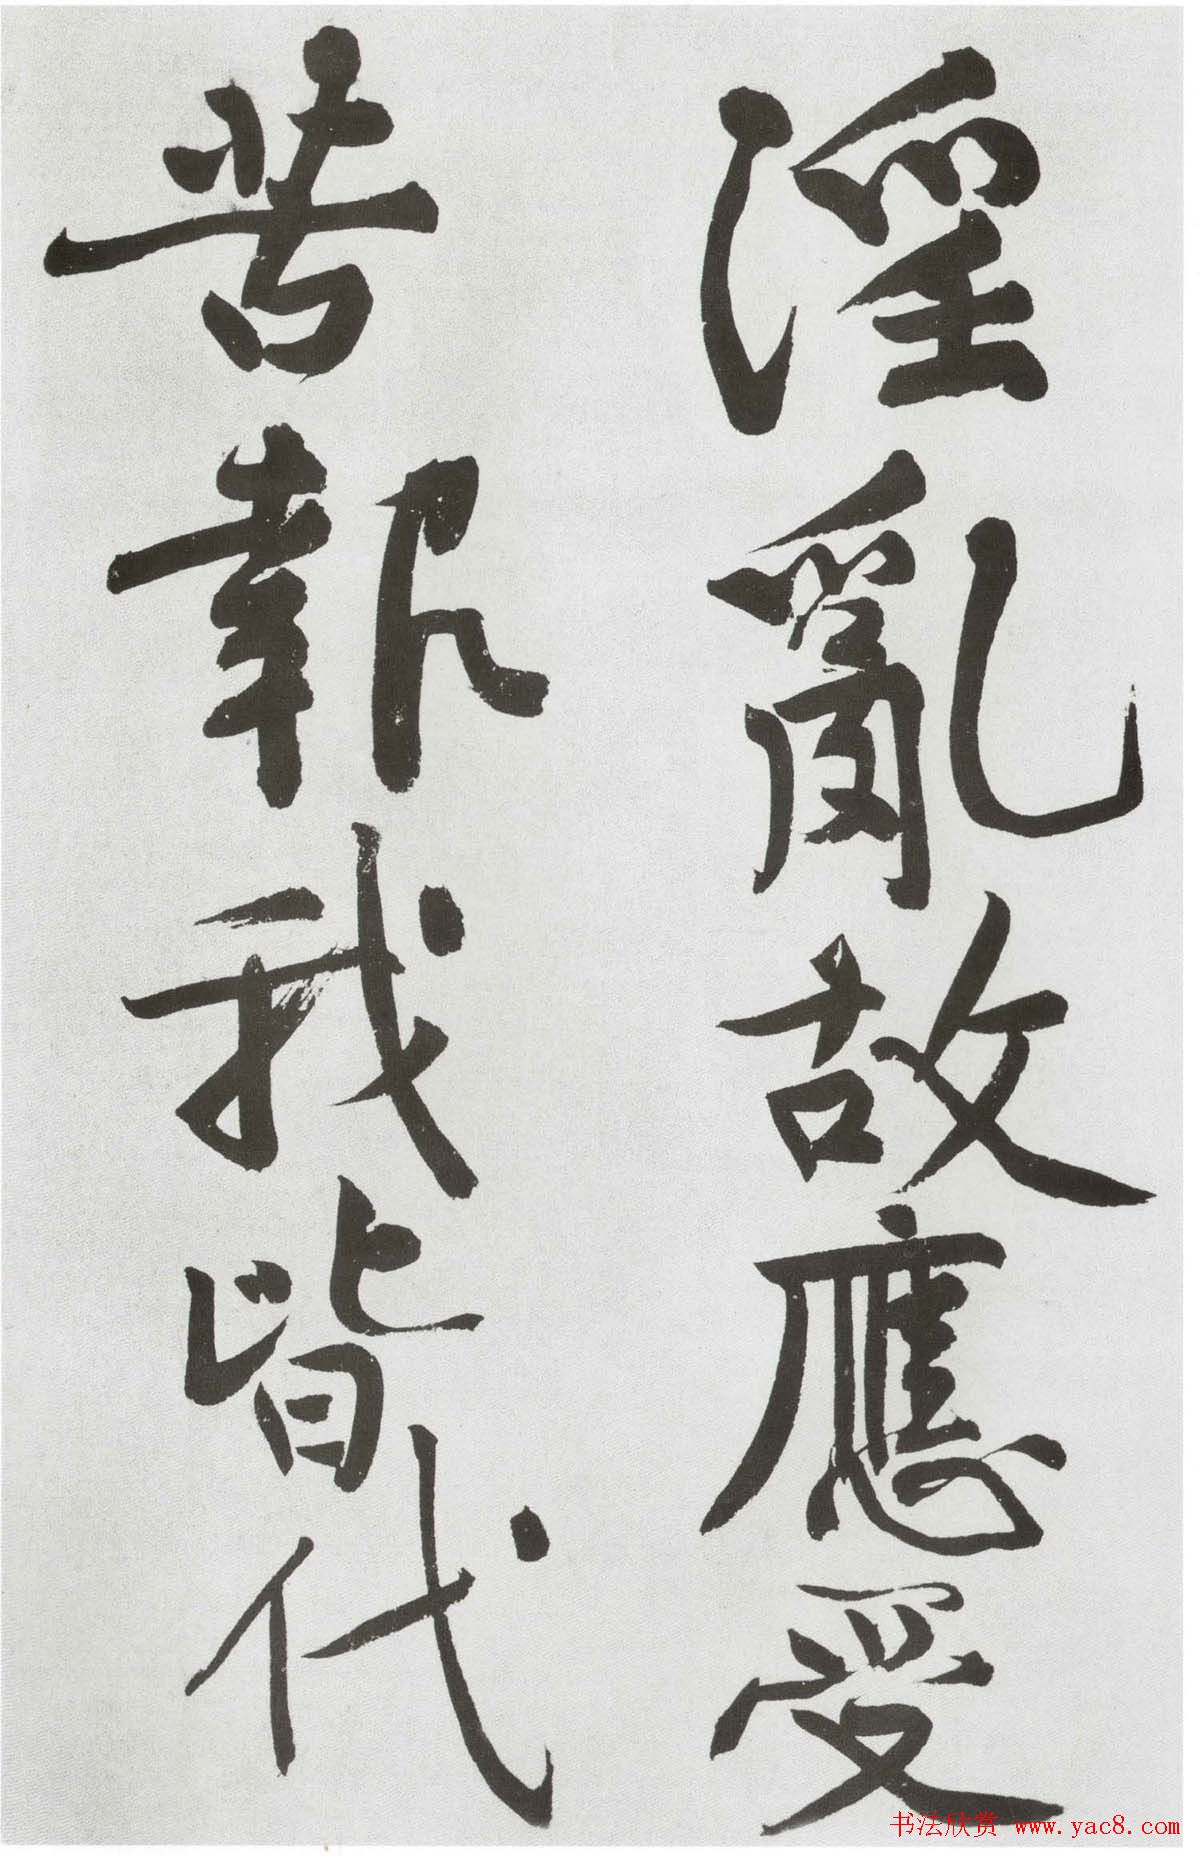 淫亂故應受
苦報我皆代
书法欣赏 www.yac8.com